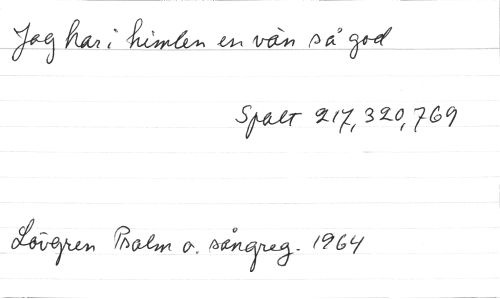 Jag har i himlen en vän så god
Spalt 217, 320, 769
Lövgren Psalm o. sångreg. 1964